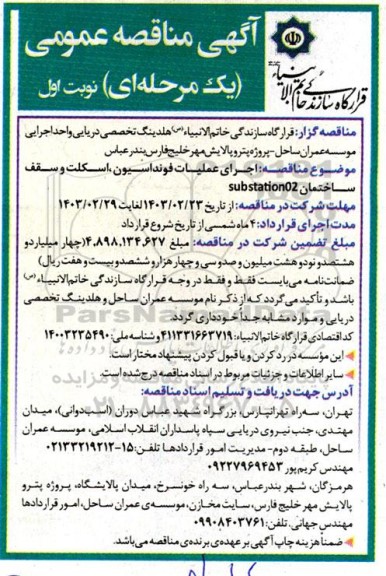 آگهی مناقصه عمومی
(یک مرحله‌ای) نوبت اول
قرارگاه سازندگی خاتم الانبیاء
مناقصه گزار: قرارگاه سازندگی خاتم الانبیاء (ص) هلدینگ تخصصی دریایی واحد اجرایی
موسسه عمران ساحل-پروژه پتروپالایش مهر خلیج فارس بندرعباس
موضوع مناقصه: اجرای عملیات فونداسیون، اسکلت و سقف
ساختمان substation02
مهلت شرکت در مناقصه: از تاریخ ۱۴۰۳/۰۲/۲۳ لغایت ۱۴۰۳/۰۲/۲۹
مدت اجرای قرارداد: ۴ ماه شمسی از تاریخ شروع قرارداد
مبلغ تضمین شرکت در مناقصه: مبلغ ۴,۸۹۸,۱۳۴,۶۲۷ (چهار میلیارد و
هشتصد و نود و هشت میلیون و صد و سی و چهار هزار و ششصد و بیست و هفت ریال)
ضمانت‌نامه می‌بایست فقط و فقط در وجه قرارگاه سازندگی خاتم الانبیاء (ص)
باشد و تأکید می‌گردد که از ذکر نام موسسه عمران ساحل و هلدینگ تخصصی
دریایی و موارد مشابه جداً خودداری گردد.
کد اقتصادی قرارگاه خاتم الانبیاء: ۴۱۱۳۳۱۶۶۳۷۱۹ و شناسه ملی: ۱۴۰۰۳۲۳۵۴۹۰
این مؤسسه در رد کردن و یا قبول کردن پیشنهاد مختار است.
سایر اطلاعات و جزئیات مربوط در اسناد مناقصه درج شده است.
آدرس جهت دریافت و تسلیم اسناد مناقصه:
تهران، سه‌راه تهرانپارس، بزرگراه شهید عباس دوران (اسب‌دوانی)، میدان
مهتدی، جنب نیروی دریایی سپاه پاسداران انقلاب اسلامی، موسسه عمران
ساحل، طبقه دوم- مدیریت امور قراردادها تلفن: ۱۵-۰۲۱۳۳۲۱۹۲۱۲
مهندس کریم پور ۰۹۲۲۷۹۶۹۴۵۳
هرمزگان، شهر بندرعباس، سه راه خونسرخ، میدان پالایشگاه، پروژه پترو
پالایش مهر خلیج فارس، سایت مخازن، موسسه‌ی عمران ساحل، امور قراردادها
مهندس جهانی. تلفن: ۰۹۹۰۸۴۰۳۷۶۱
ضمناً هزینه چاپ آگهی بر عهده‌ی برنده‌ی مناقصه می‌باشد.